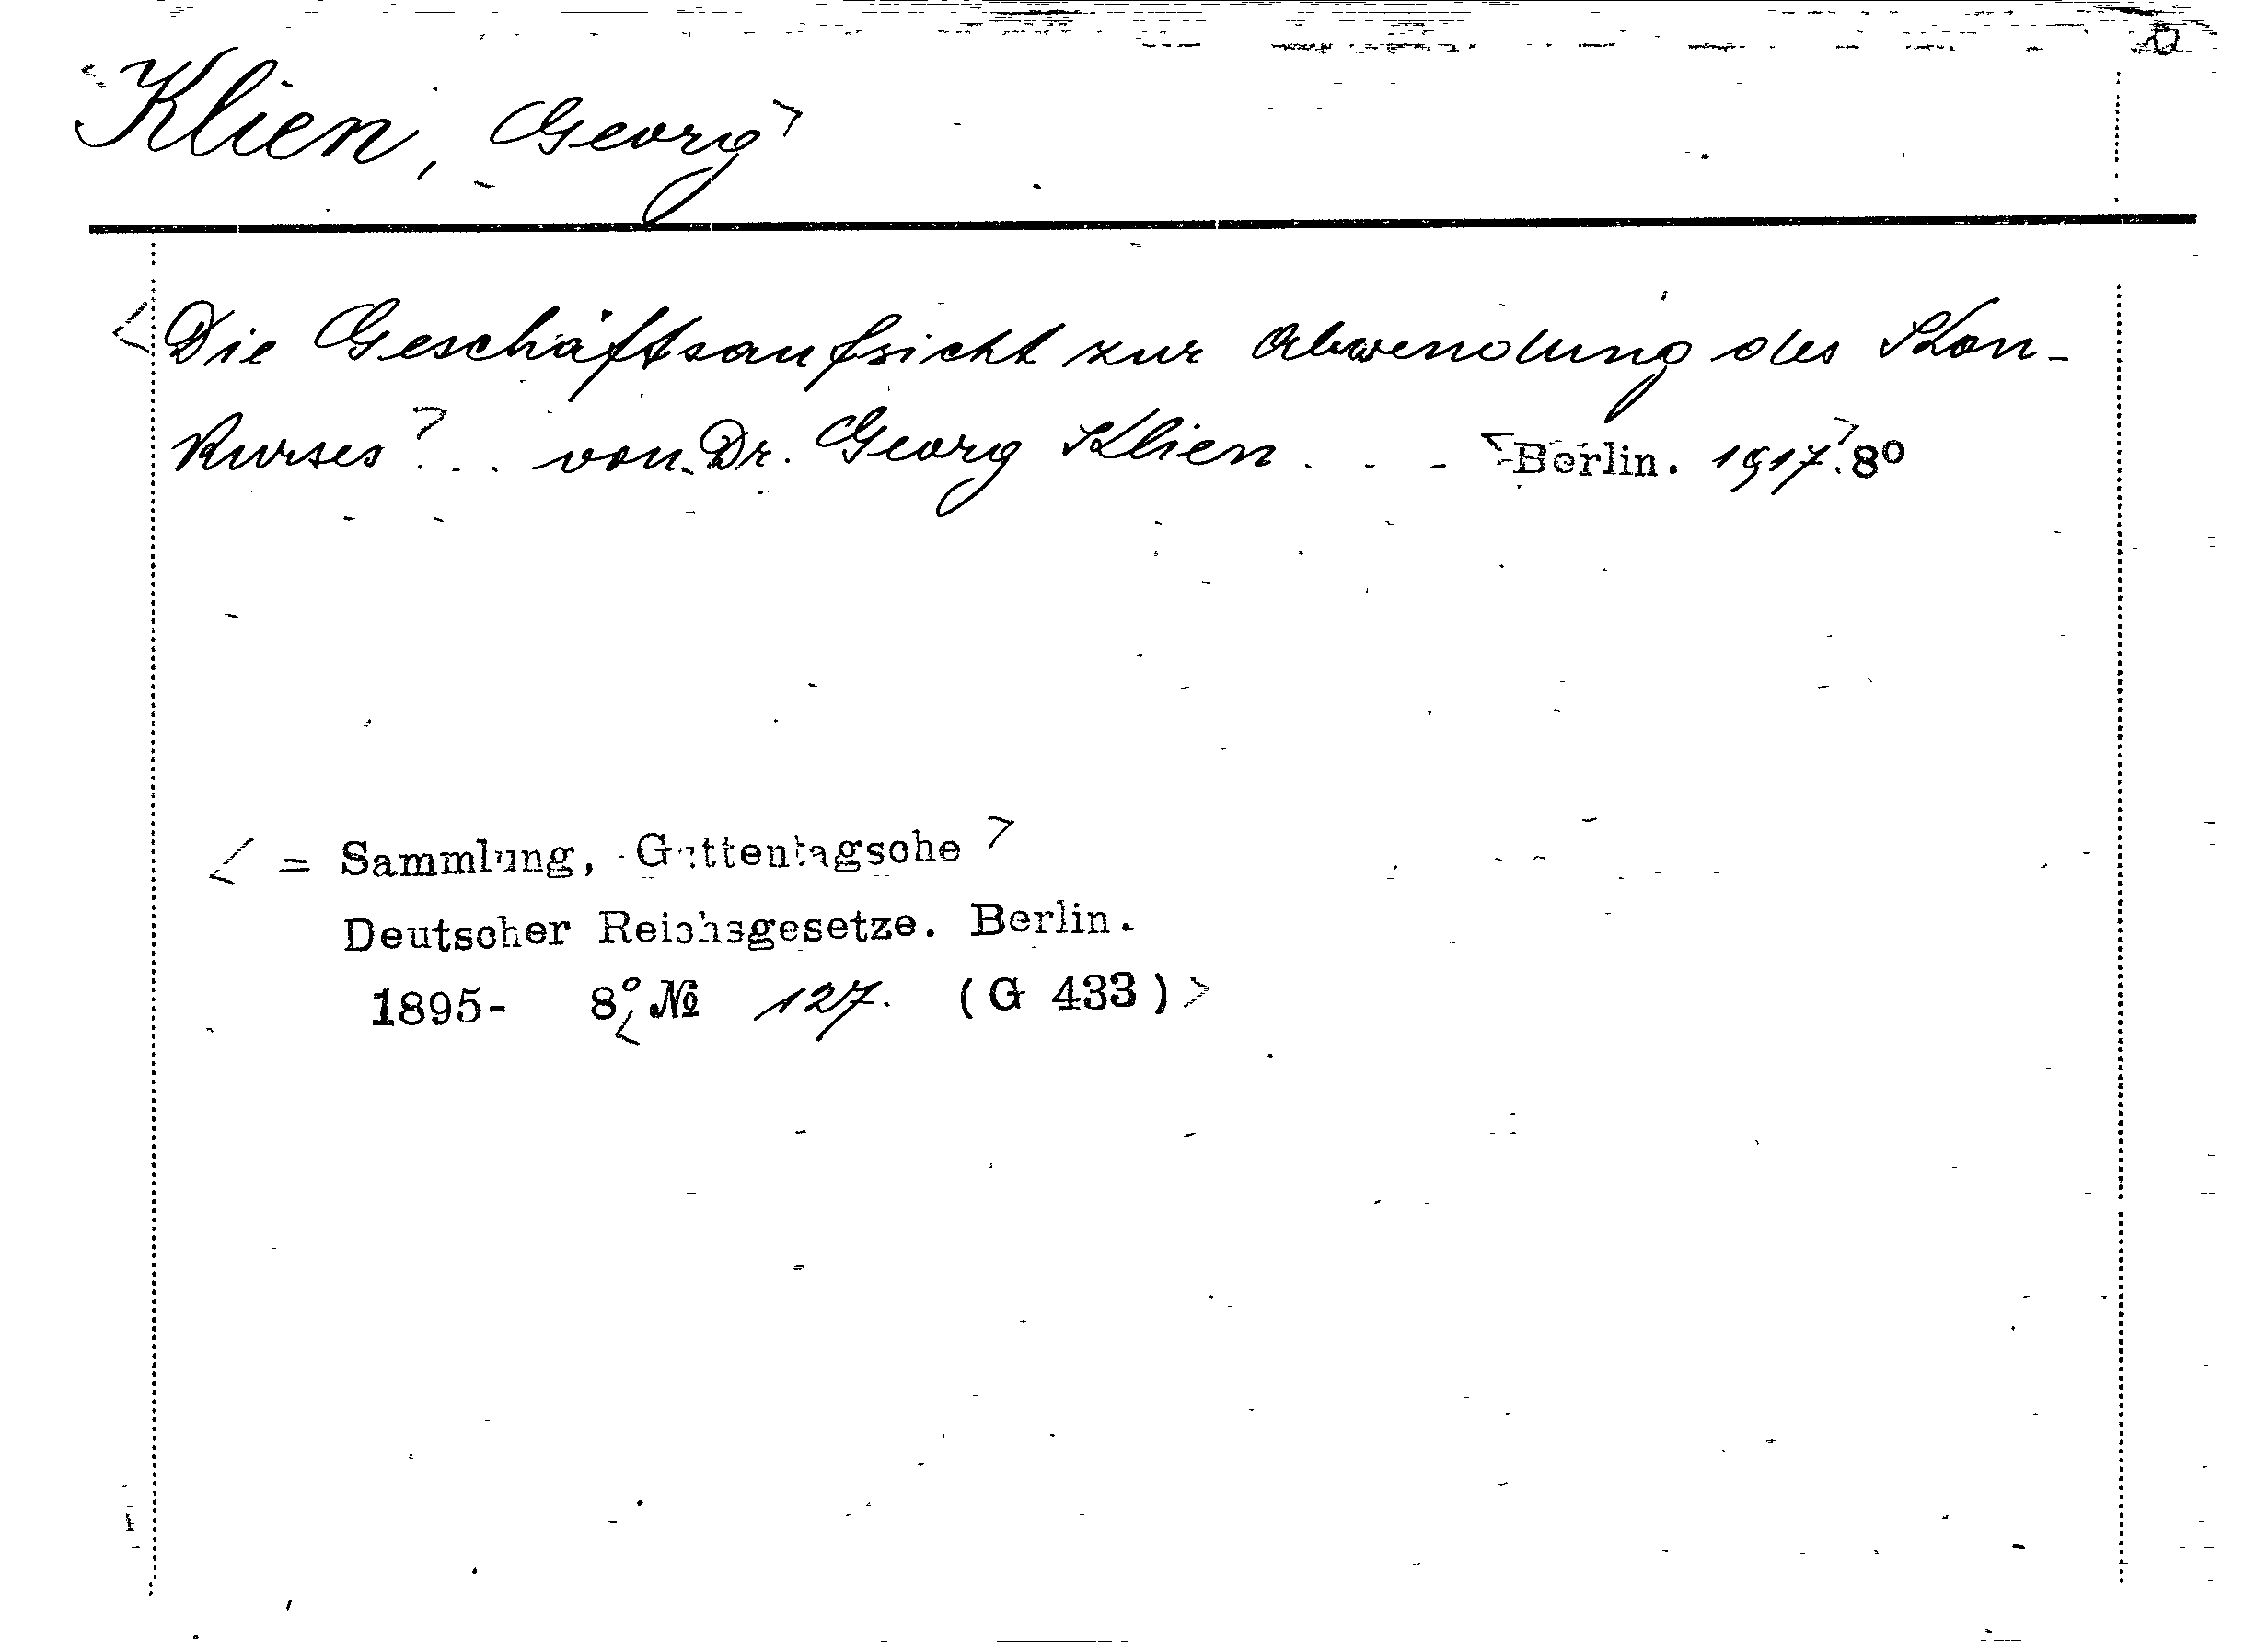 <Klien, Georg>
<Die Geschäftsaufsicht zur Abwendung des Kon-
kurses> ... von Dr. Georg Klien . . - <Berlin. 1917>. 8°
< = Sammlung, Guttentagsche >
Deutscher Reichsgesetze. Berlin.
1895- 8°. < № 127. (G 433) >